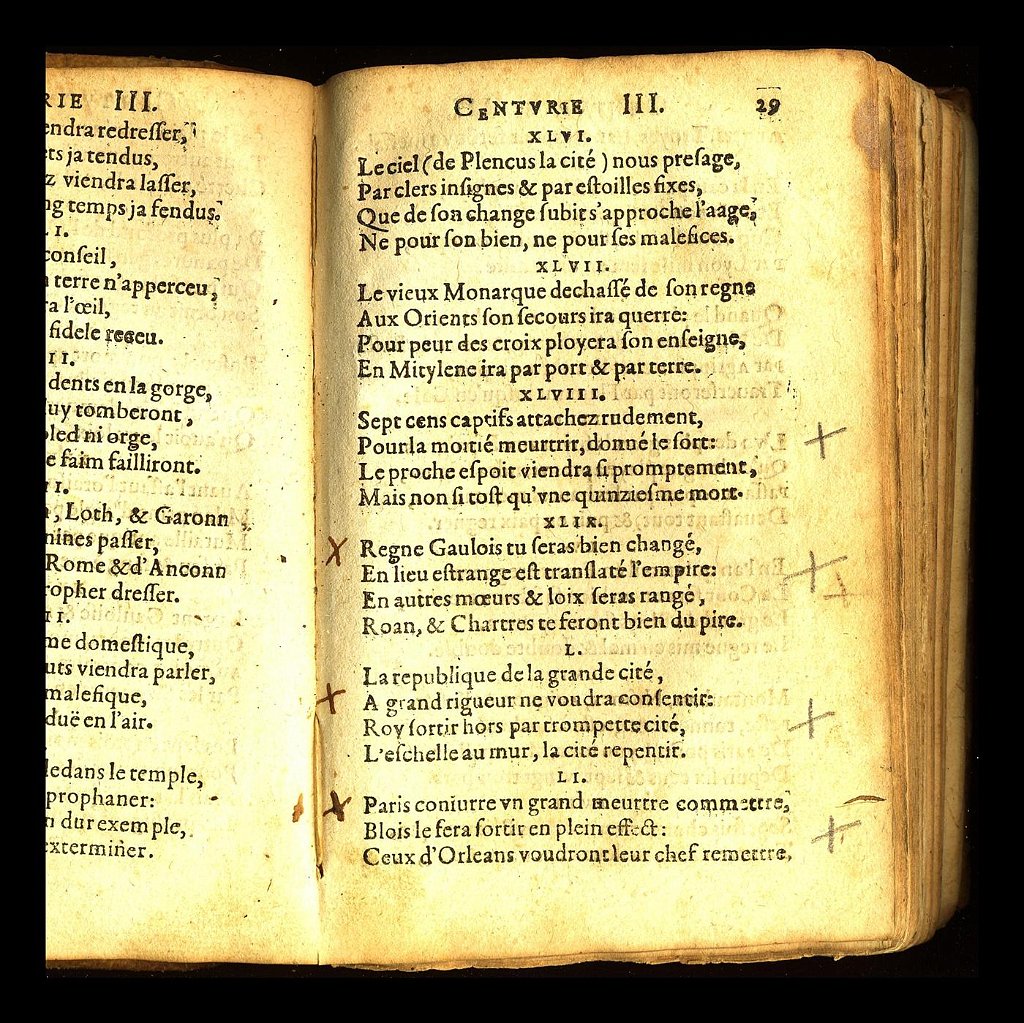 RIE III.
endra redresser,
ets ja tendus,
z viendra lasser,
ng temps ja fendus.
LI.
conseil,
terre n'apperceu,
a l'œil,
fidele receu.
II.
dents en la gorge,
uy tomberont,
bled ni orge,
e faim failliront.
II.
, Loth, & Garonn
nines passer,
Rome & d'Anconn
ropher dresser.
II.
me domestique,
uts viendra parler,
malefique,
duë en l'air.
ledans le temple,
prophaner:
n dur exemple,
exterminer.
CENTVRIE III. 29
XLVI.
Le ciel (de Plencus la cité) nous presage,
Par clers insignes & par estoilles fixes,
Que de son change subit s'approche l'aage,
Ne pour son bien, ne pour ses malefices.
XLVII.
Le vieux Monarque dechassé de son regne
Aux Orients son secours ira querre:
Pour peur des croix ployera son enseigne,
En Mitylene ira par port & par terre.
XLVIII.
Sept cens captifs attachez rudement,
Pour la moitié meurtrir, donné le sort:
Le proche espoit viendra si promptement,
Mais non si tost qu'vne quinziesme mort.
XLIX.
Regne Gaulois tu seras bien changé,
En lieu estrange est translaté l'empire:
En autres mœurs & loix seras rangé,
Roan, & Chartres te feront bien du pire.
L.
La republique de la grande cité,
A grand rigueur ne voudra consentir:
Roy sortir hors par trompette cité,
L'eschelle au mur, la cité repentir.
LI.
Paris coniurre vn grand meurtre commettre,
Blois le fera sortir en plein effect:
Ceux d'Orleans voudront leur chef remettre,